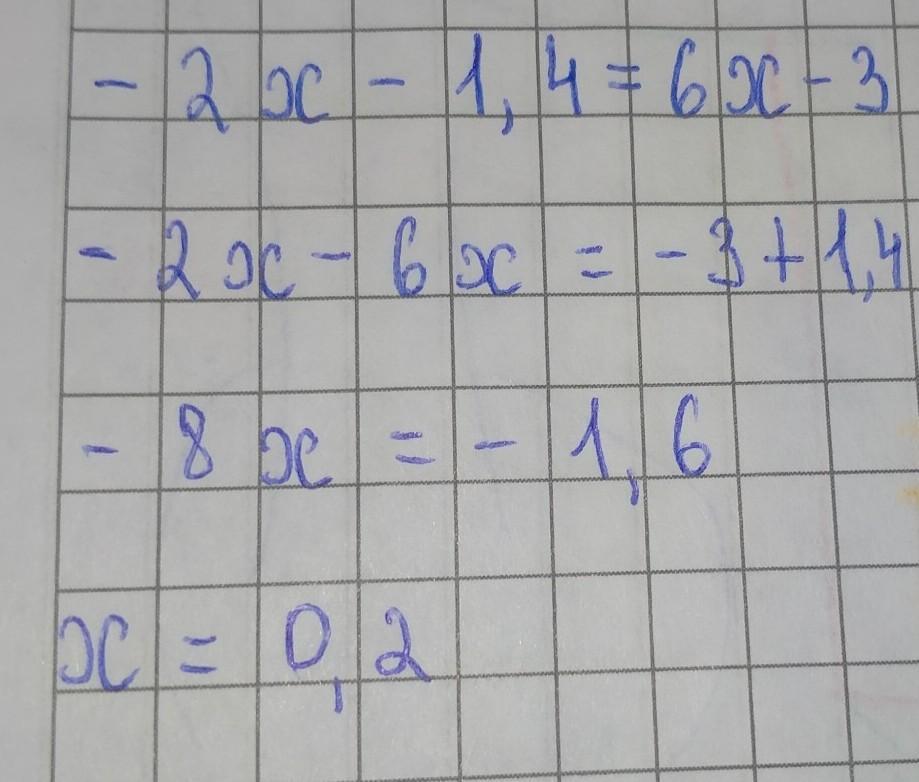 - 2x - 1,4 = 6x - 3
- 2x - 6x = - 3 + 1,4
- 8x = - 1,6
x = 0,2